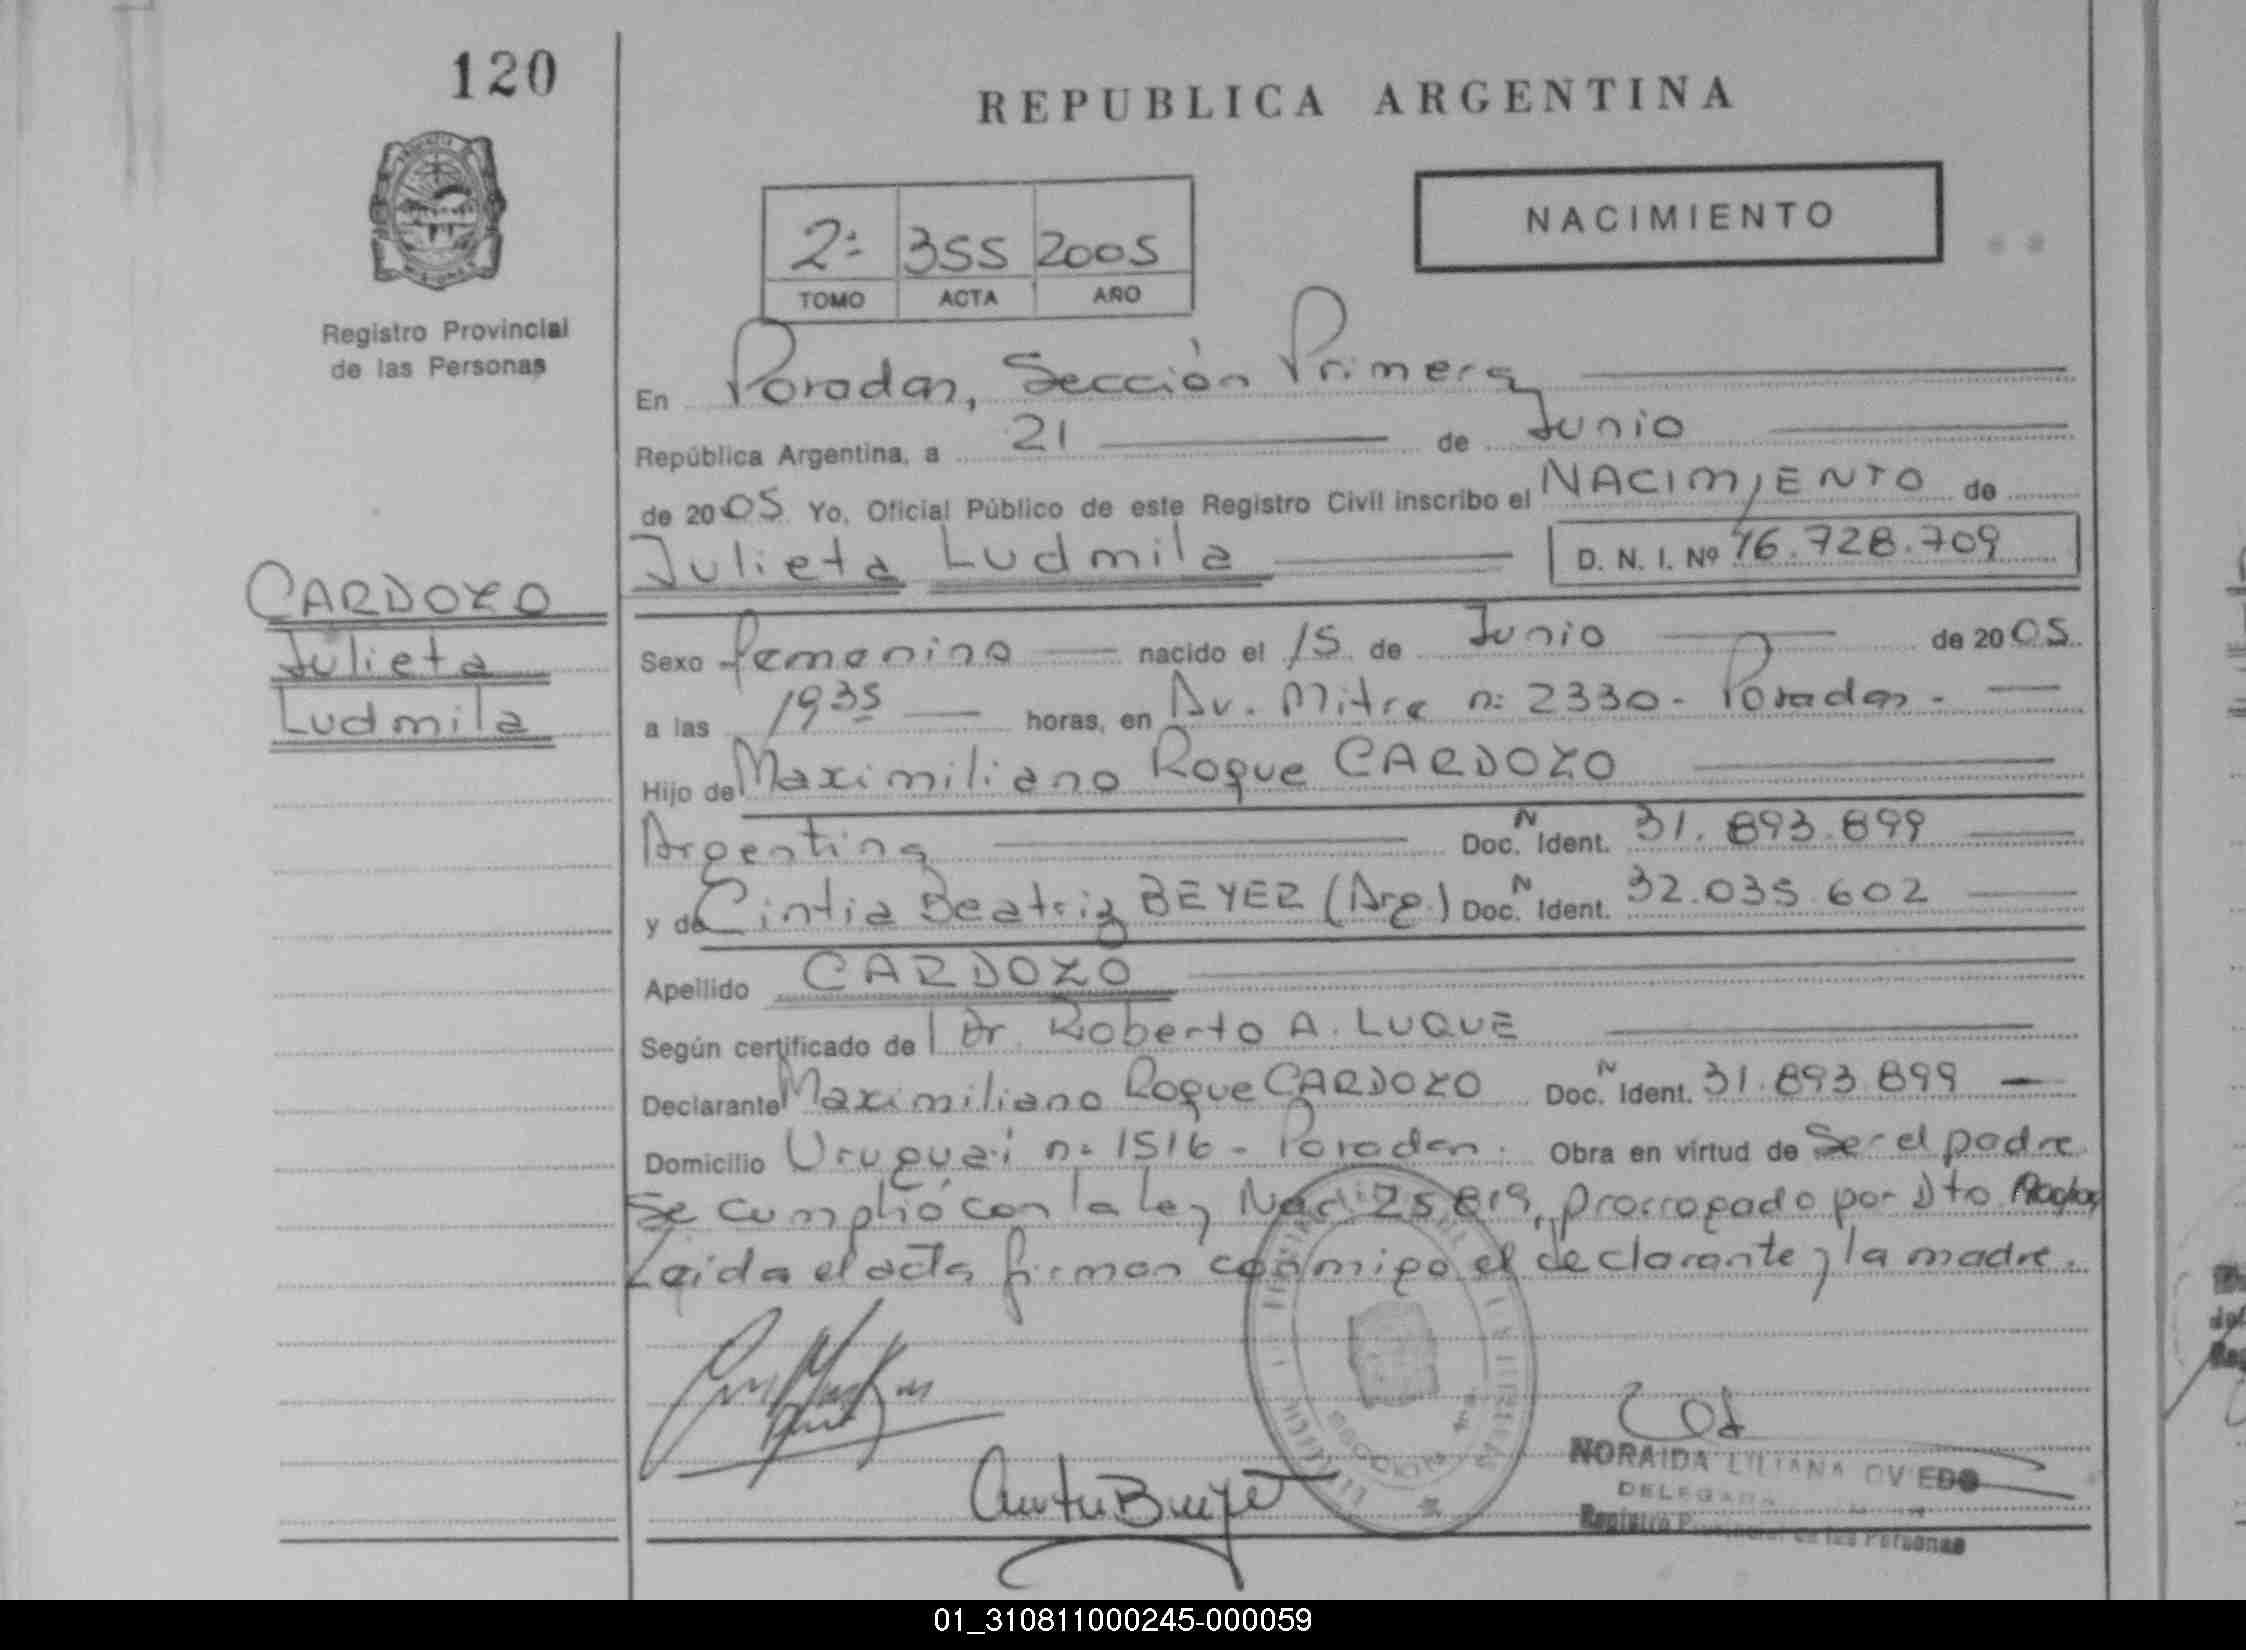 120
REPUBLICA ARGENTINA
NACIMIENTO
2ª 355 2005
TOMO ACTA AÑO
Registro Provincial
de las Personas
En Posadas, Sección Primera
República Argentina, a 21 de Junio
de 2005 Yo, Oficial Público de este Registro Civil inscribo el NACIMIENTO de
Julieta Ludmila D. N. I. Nº 46.728.709
CARDOZO
Julieta
Ludmila
Sexo femenino nacido el 15 de Junio de 2005
a las 19 35 horas, en Av. Mitre nº 2330 - Posadas -
Hijo de Maximiliano Roque CARDOZO
Argentina Doc. N Ident. 31.893.899
y de Cintia Beatriz BEYER (Arg.) Doc. N Ident. 32.035.602
Apellido CARDOZO
Según certificado de Dr Roberto A. LUQUE
Declarante Maximiliano Roque CARDOZO Doc. N Ident. 31.893.899
Domicilio Uruguai nº 1516 - Posadas. Obra en virtud de Ser el padre
Se cumplió con la ley Nac 25819, prorrogado por Dto
Leida el acta firman conmigo el declarante y la madre.
NORAIDA LILIANA OVIEDO
DELEGADA
Registro Provincial de las Personas
01_310811000245-000059